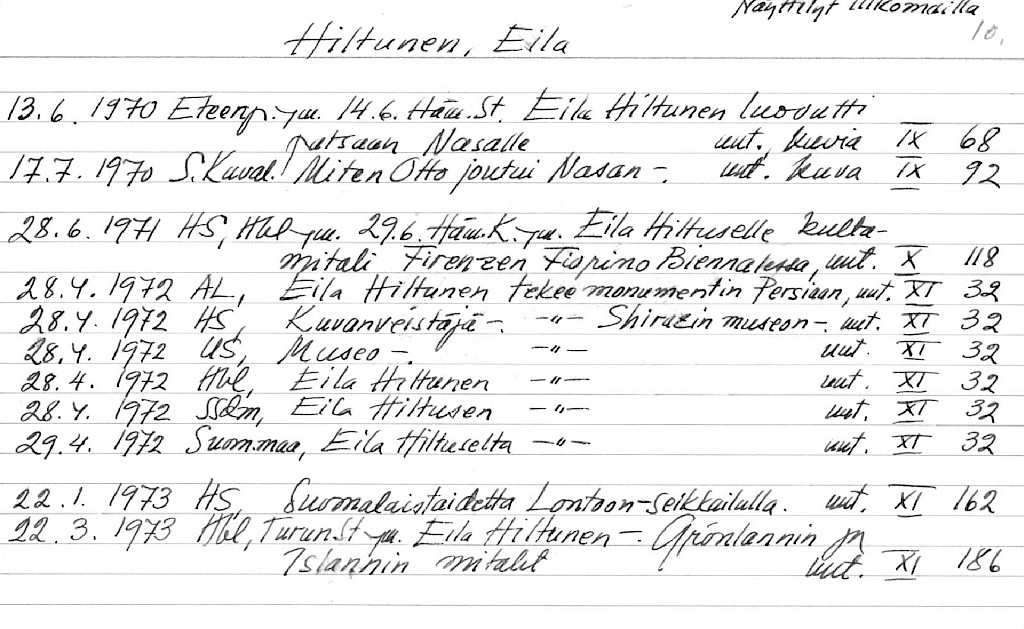 Näyttelyt ulkomailla
10.
Hiltunen, Eila
13.6. 1970 Eteenp. ym. 14.6. Häm.St. Eila Hiltunen luovutti
patsaan Nasalle uut., kuvia IX 68
17.7. 1970 S.Kuval. Miten Otto joutui Nasan -. uut. kuva IX 92
28.6. 1971 HS, Hbl ym. 29.6. Häm.K. ym. Eila Hiltuselle kulta-
mitali Firenzen Fiorino Biennalessa, uut. X 118
28.4. 1972 AL, Eila Hiltunen tekee monumentin Persiaan, uut. XI 32
28.4. 1972 HS, Kuvanveistäjä -. -"- Shirazin museon -. uut. XI 32
28.4. 1972 US, Museo -. -"- uut. XI 32
28.4. 1972 Hbl, Eila Hiltunen -"- uut. XI 32
28.4. 1972 SSdm, Eila Hiltusen -"- uut. XI 32
29.4. 1972 Suom.maa, Eila Hiltuselta -"- uut. XI 32
22.1. 1973 HS, Suomalaistaidetta Lontoon-seikkailulla. uut. XI 162
22.3. 1973 Hbl, Turun St ym. Eila Hiltunen -. Grönlannin ja
Islannin mitalit uut. XI 186